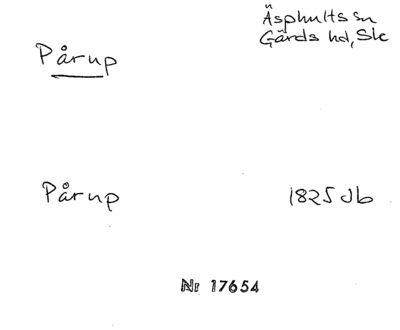 Äsphults sn
Gärds hd, Sk
Pårup
Pårup
1825 Jb
Nr 17654